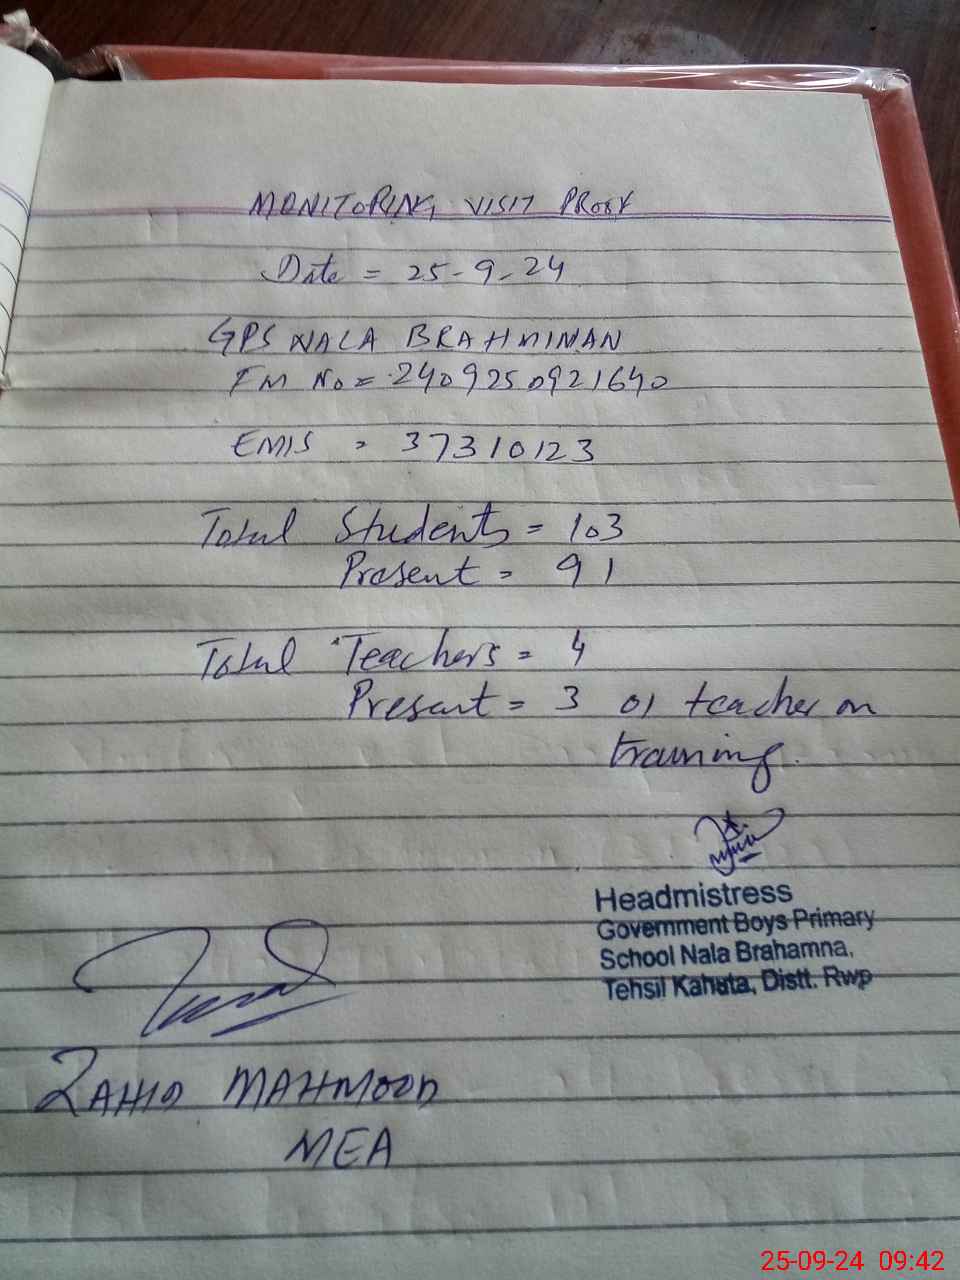 MONITORING VISIT PROOF
Date = 25-9-24
GPS NALA BRAHMINAN
FM No = 2409250921640
EMIS = 37310123
Total Students = 103
Present = 91
Total Teachers = 4
Present = 3 01 teacher on
training.
Headmistress
Government Boys Primary
School Nala Brahamna,
Tehsil Kahuta, Distt. Rwp
ZAHID MAHMOOD
MEA
25-09-24 09:42